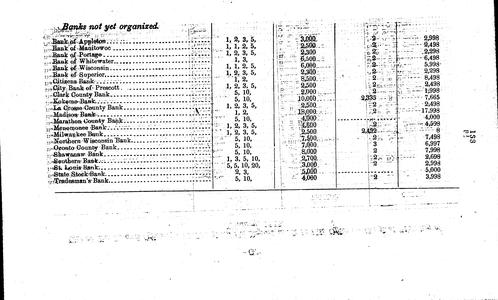 Banks not yet organized.
Bank of Appleton 1, 2, 3, 5, 3,000 2 2,998
Bank of Manitowoc 1, 1, 2, 5, 2,500 2 2,498
Bank of Portage 1, 2, 3, 5, 2,300 2 2,298
Bank of Whitewater 1, 3, 6,500 2 6,498
Bank of Wisconsin 1, 1, 2, 5, 6,000 2 5,998
Bank of Superior 1, 2, 3, 5, 2,300 2 2,298
Citizens Bank 1, 2, 8,500 2 8,498
City Bank of Prescott 1, 2, 3, 5, 2,500 2 2,498
Clark County Bank 5, 10, 2,000 2 1,998
Kokomo Bank 5, 10, 10,000 2,335 7,665
La Crosse County Bank 1, 2, 3, 5, 2,500 2 2,498
Madison Bank 1, 2, 18,000 2 17,998
Marathon County Bank 5, 10, 4,000 4,000
Menomonee Bank 1, 2, 3, 5, 4,600 2 4,598
Milwaukee Bank 1, 2, 3, 5, 2,500 2,492 8
Northern Wisconsin Bank 5, 10, 7,500 2 7,498
Oconto County Bank 5, 10, 7,000 3 6,997
Shawanaw Bank 5, 10, 8,000 2 7,998
Southern Bank 1, 3, 5, 10, 2,700 2 2,698
St. Louis Bank 5, 5, 10, 20, 3,000 2 2,998
State Stock Bank 2, 3, 5,000 5,000
Tradesman's Bank 5, 10, 4,000 2 3,998